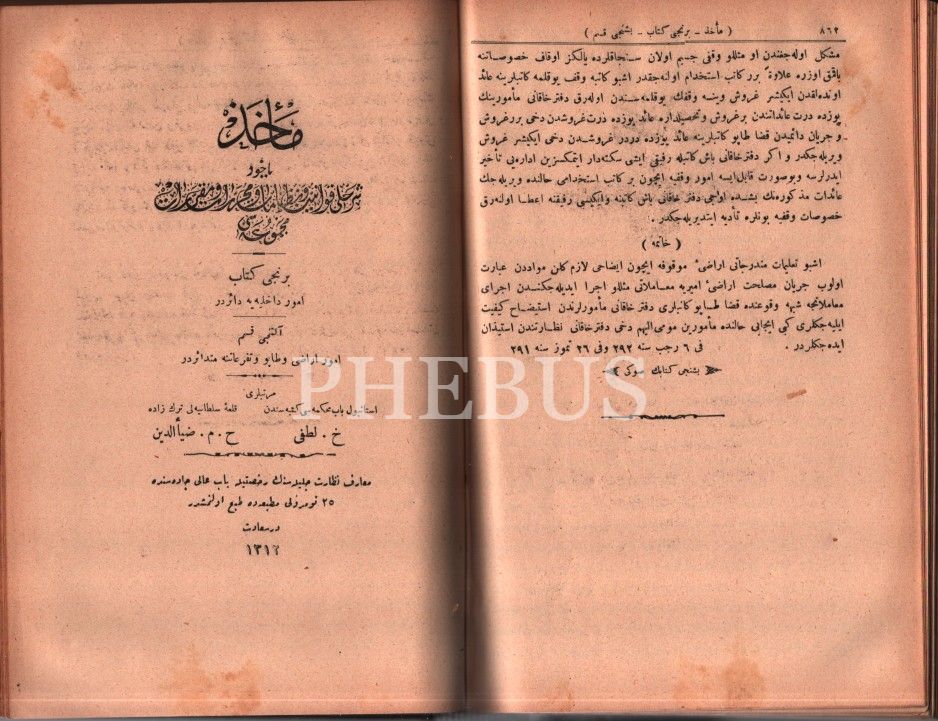 ٨٦٢
( مأخذ - برنجی كتاب - بشنجی قسم )
مشكل اوله‌جغندن او مثللو وقفی جسیم اولان سنجاقلرده یالكز اوقاف خصوصاتنه
باقمق اوزره علاوةً برر كاتب استخدام اولنه‌جقدر اشبو كاتبه وقف یوقلمه كاتبلرینه عائد
اونده‌لقدن ایكیشر غروش وینسه وقفك یوقلمه‌سندن اوله‌رق دفترخاقانی مأمورینك
یوزده درت عائداتندن برغروش و تحصیلداره عائد یوزده درت غروشدن دخی بررغروش
و جریان دائمیدن قضا طاپو كاتبلرینه عائد یوزده دردر غروشدن دخی ایكیشر غروش
ویریله‌جكدر و اكر دفترخاقانی باش كاتبله رفیقی ایشی سكته‌دار ایتمكسزین اداره‌یی تأخیر
ایدرلرسه وبوصورت قابل ایسه امور وقفیه ایچون بر كاتب استخدامی حالنده ویریله‌جك
عائدات مذكوره‌نك بشده اوچی دفتر خاقانی باش كاتبنه وایكیسی رفیقنه اعطا اولنه‌رق
خصوصات وقفیه بونلره تأدیه ایتدیریله‌جكدر.
( خاتمه )
اشبو تعلیمات مندرجاتی اراضیٔ موقوفه ایچون ایضاحی لازم كلن مواددن عبارت
اولوب جریان مصلحت اراضیٔ امیریه معاملاتی مثللو اجرا ایدیله‌جكندن اجرای
معاملاتجه شبهه وقوعنده قضا طاپو كاتبلری دفتر خاقانی مأمورلرندن استیضاح كیفیت
ایلیه‌جكلری كبی ایجابی حالنده مأمورین مومی‌الیهم دخی دفترخاقانی نظارتندن استیذان
ایده‌جكلردر. فی ٦ رجب سنه ٢٩٢ وفی ٢٦ تموز سنه ٢٩١
بشنجی كتابك صوكی
مأخذ
یاخود
مجموعه‌سی
برنجی كتاب
امور داخلیه‌یه دائردر
آلتنجی قسم
امور اراضی وطاپو وتفرعاتنه متدائردر
مرتبلری
استانبول باب محكمه‌سی كتبه‌سندن قلعهٔ سلطانیه‌لی ترك زاده
خ. لطفی ح. م. ضیأالدین
معارف نظارت جلیله‌سنك رخصتیله باب عالی جاده‌سنده
٢٥ نومرولی مطبعه‌ده طبع اولنمشدر
درسعادت
١٣١٢
PHEBUS